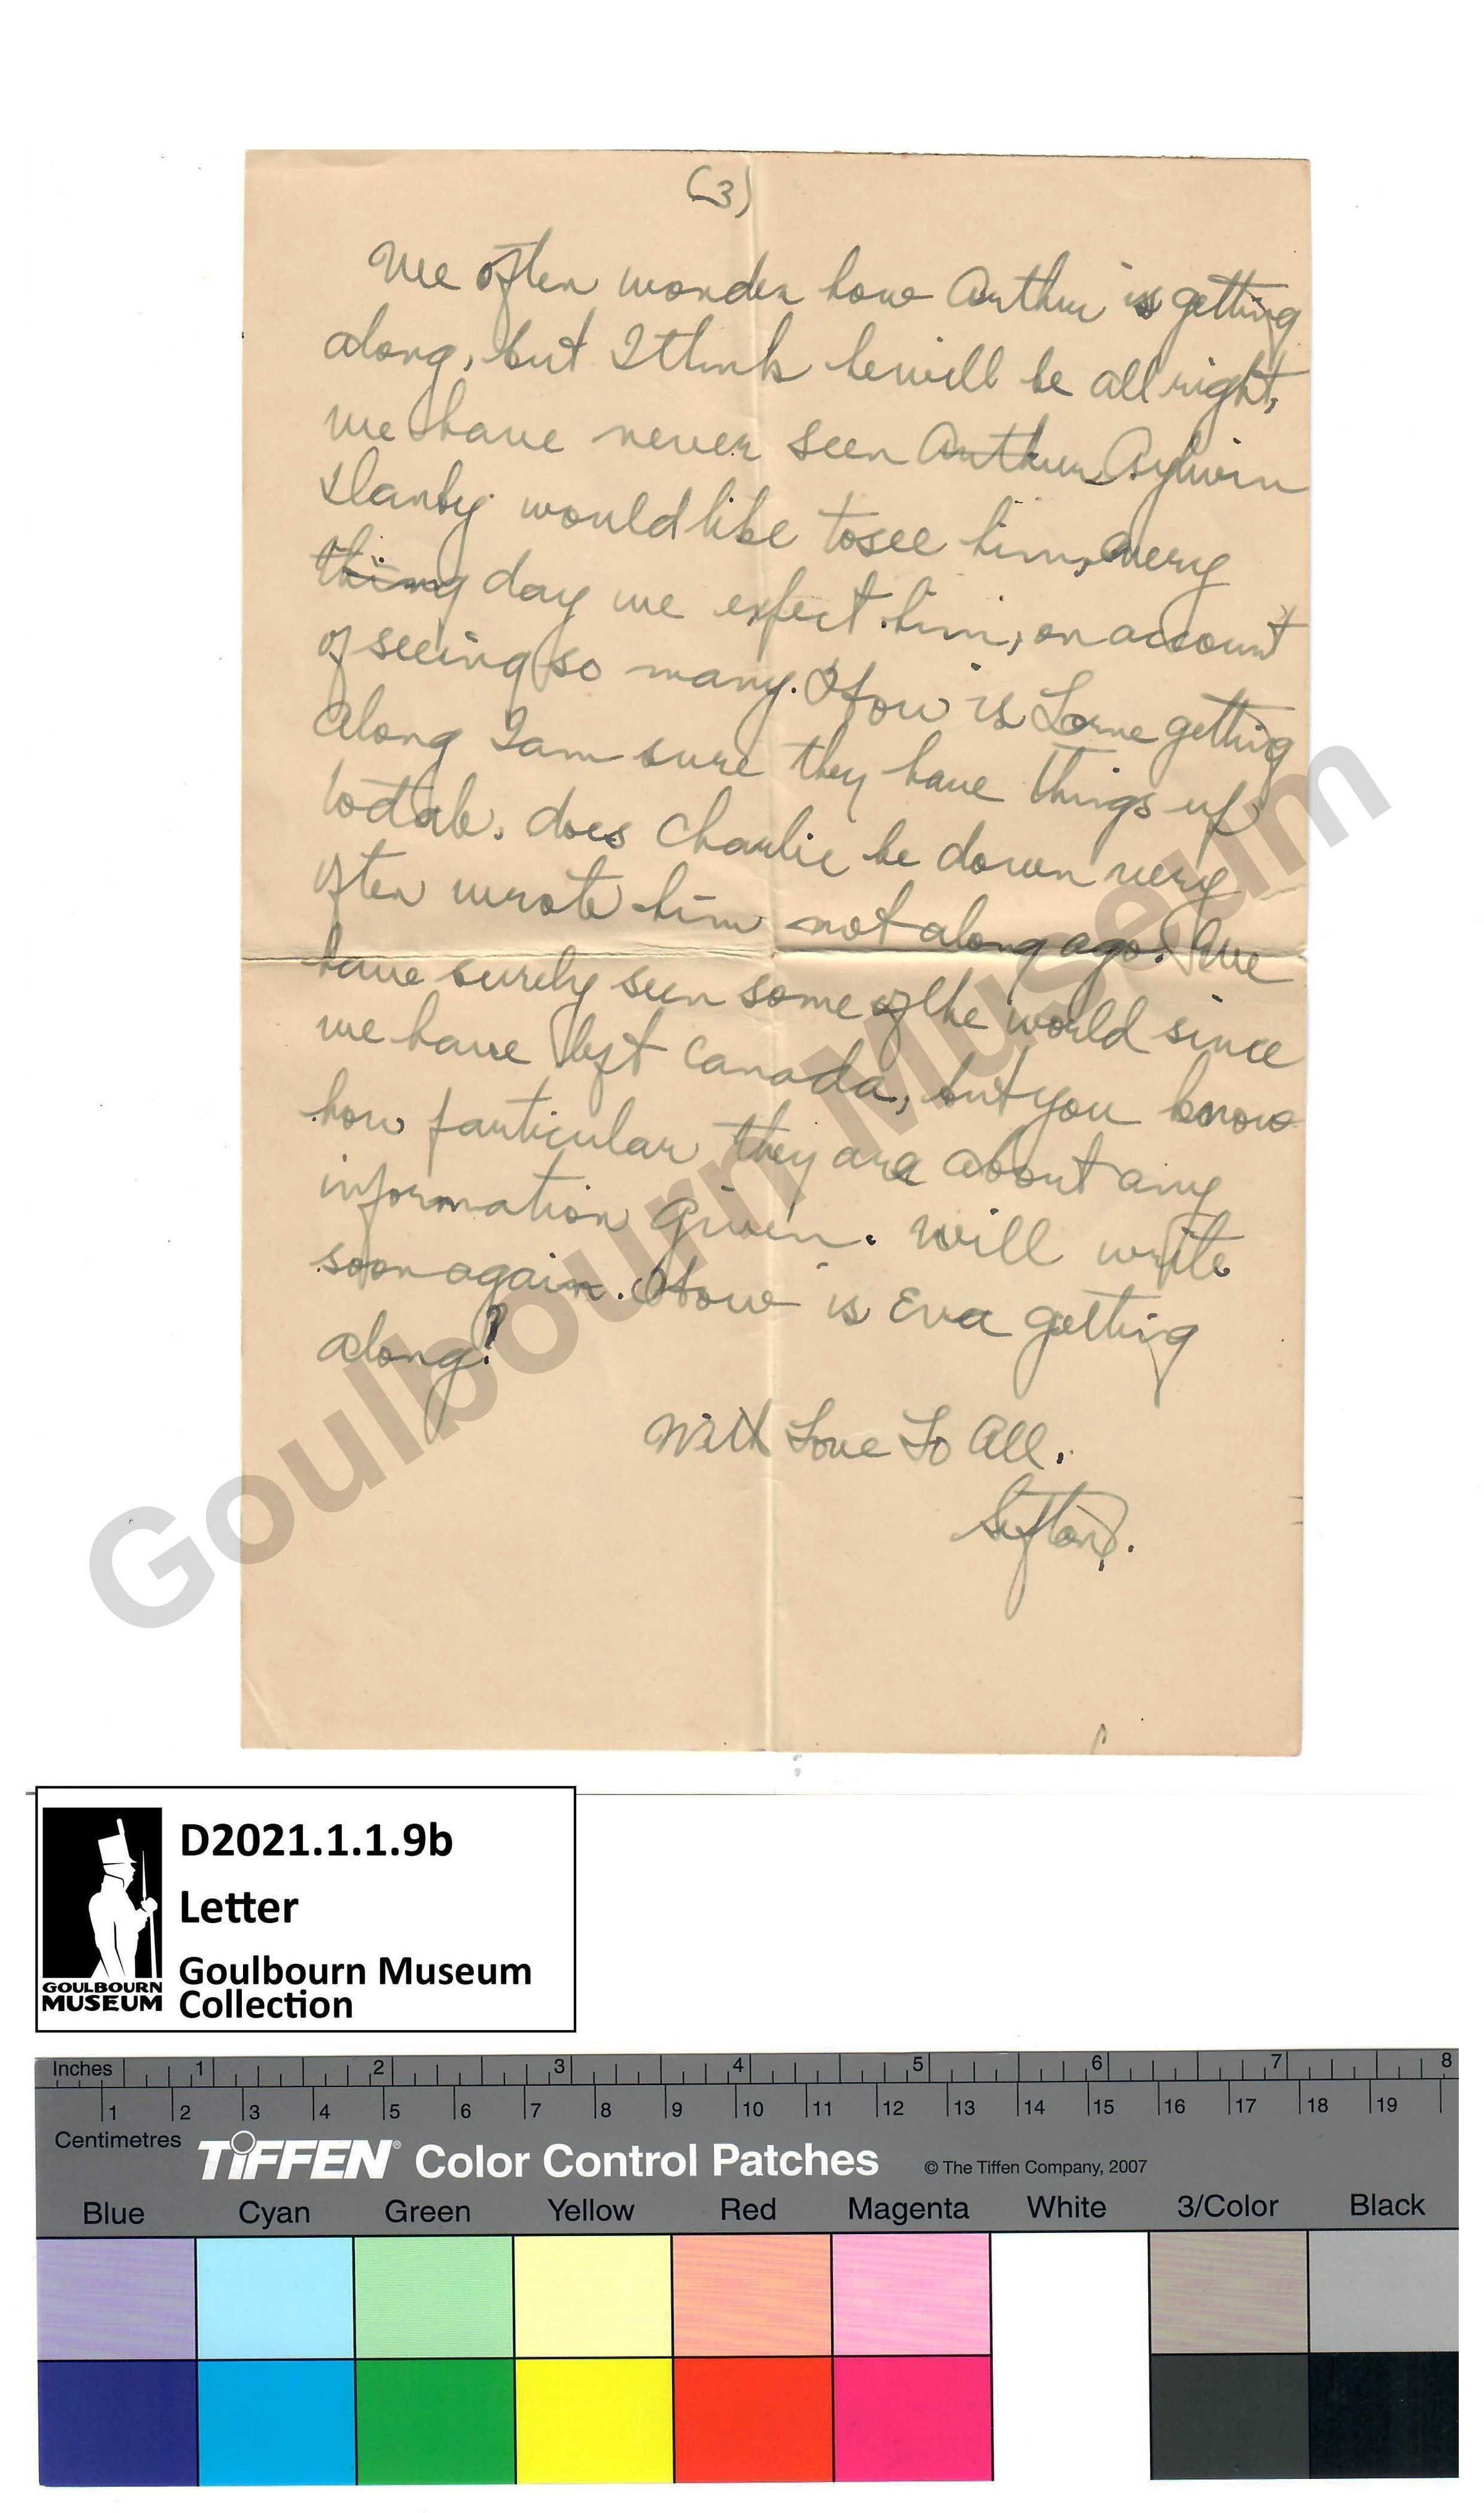 (3)
We often wonder how Arthur is getting
along, but I think he will be all right,
we have never seen Arthur Aylwin
would like to see him, every
thing day we expect him, on account
of seeing so many. How is Lorne getting
along I am sure they have things up
to date. does Charlie be down very
often wrote him not along ago. We
have surely seen some of the world since
we have left Canada, but you know
how particular they are about any
information given. will write
soon again. How is Eva getting
along?
With Love To All.
Sifton.
Goulbourn Museum
D2021.1.1.9b
Letter
Goulbourn Museum
Collection
GOULBOURN
MUSEUM
Inches 1 2 3 4 5 6 7 8
1 2 3 4 5 6 7 8 9 10 11 12 13 14 15 16 17 18 19
Centimetres
TIFFEN® Color Control Patches © The Tiffen Company, 2007
Blue Cyan Green Yellow Red Magenta White 3/Color Black